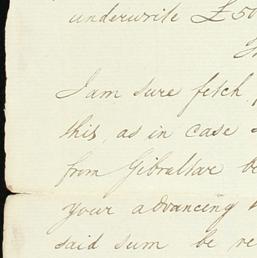 underwrite £50
I am sure fetch
this, as in case
from Gibraltar be
your advancing
said sum be re